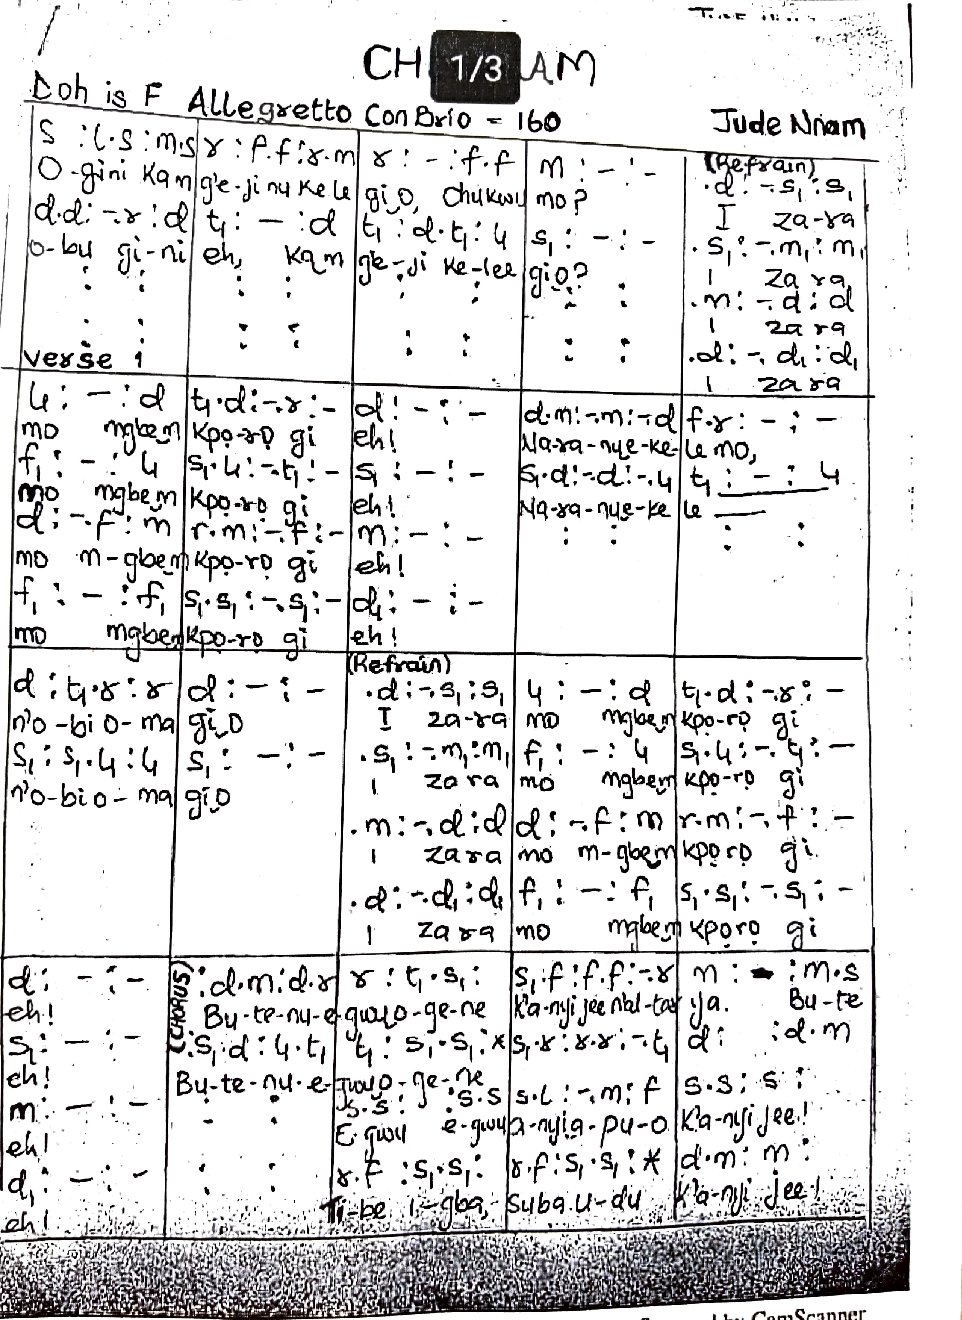 CH 1/3 AM
Doh is F Allegretto Con Brio = 160
Jude Nnam
s :l.s :m.s | r :f.f :r.m | r : - :f.f | m : - : - | (Refrain)
O-gini kam | g'e-ji nu ke le | gi o, Chukwu | mo? | .d :-.s₁ :s₁
d.d :-.r :d | t₁ : - :d | t₁ :d.t₁ :l₁ | s₁ : - : - | I za-ra
o-bu gi-ni | eh, kam | ge-ji ke-lee | gi o? | .s₁ :-.m₁ :m₁
I za ra
.m :-.d :d
I za ra
.d :-.d₁ :d₁
I za ra
Verse 1
l₁ : - :d | t₁.d :-.r :- | d : - : - | d.m :-.m :-.d | f.r : - : -
mo mgbem | kpo-ro gi | eh! | Na-ra-nye-ke- | le mo,
f₁ : - :l₁ | s₁.l₁ :-.t₁ :- | s₁ : - : - | s₁.d :-.d :-.l₁ | t₁ : - : l₁
mo mgbem | kpo-ro gi | eh! | Na-ra-nye-ke | le
d :-.f :m | r.m :-.f :- | m : - : - | : : | : :
mo m-gbem | kpo-ro gi | eh!
f₁ : - :f₁ | s₁.s₁ :-.s₁ :- | d₁ : - : -
mo mgbem | kpo-ro gi | eh!
(Refrain)
d :t₁.r :r | d : - : - | .d :-.s₁ :s₁ | l₁ : - :d | t₁.d :-.r :-
n'o-bi o-ma | gi o | I za-ra | mo mgbem | kpo-ro gi
s₁ :s₁.l₁ :l₁ | s₁ : - : - | .s₁ :-.m₁ :m₁ | f₁ : - :l₁ | s₁.l₁ :-.t₁ :-
n'o-bi o-ma | gi o | I za ra | mo mgbem | kpo-ro gi
.m :-.d :d | d :-.f :m | r.m :-.f :-
I za ra | mo m-gbem | kpo ro gi
.d :-.d₁ :d₁ | f₁ : - :f₁ | s₁.s₁ :-.s₁ :-
I za ra | mo mgbem | kporo gi
(CHORUS)
d : - : - | :d.m :d.r | r :t₁.s₁ : | s₁.f :f.f :-.r | m : - :m.s
eh! | Bu-te-nu-e- | gwu o-ge-ne | K'a-nyi jee | ya. Bu-te
s₁ : - : - | :s₁.d :l₁.t₁ | t₁ :s₁.s₁ :* | s₁.r :r.r :-.t₁ | d : :d.m
eh! | Bu-te-nu-e- | gwu o-ge-ne
m : - : - | : : | s.s : :s.s | s.l :-.m :f | s.s :s :
eh! | E gwu e-gwu | a-nyia-pu-o | K'a-nyi jee!
d₁ : - : - | : : | r.f :s₁.s₁ : | r.f :s₁.s₁ :* | d.m :m :
eh! | Ti-be I-gba, | Suba u-du | K'a-nyi jee!
CamScanner